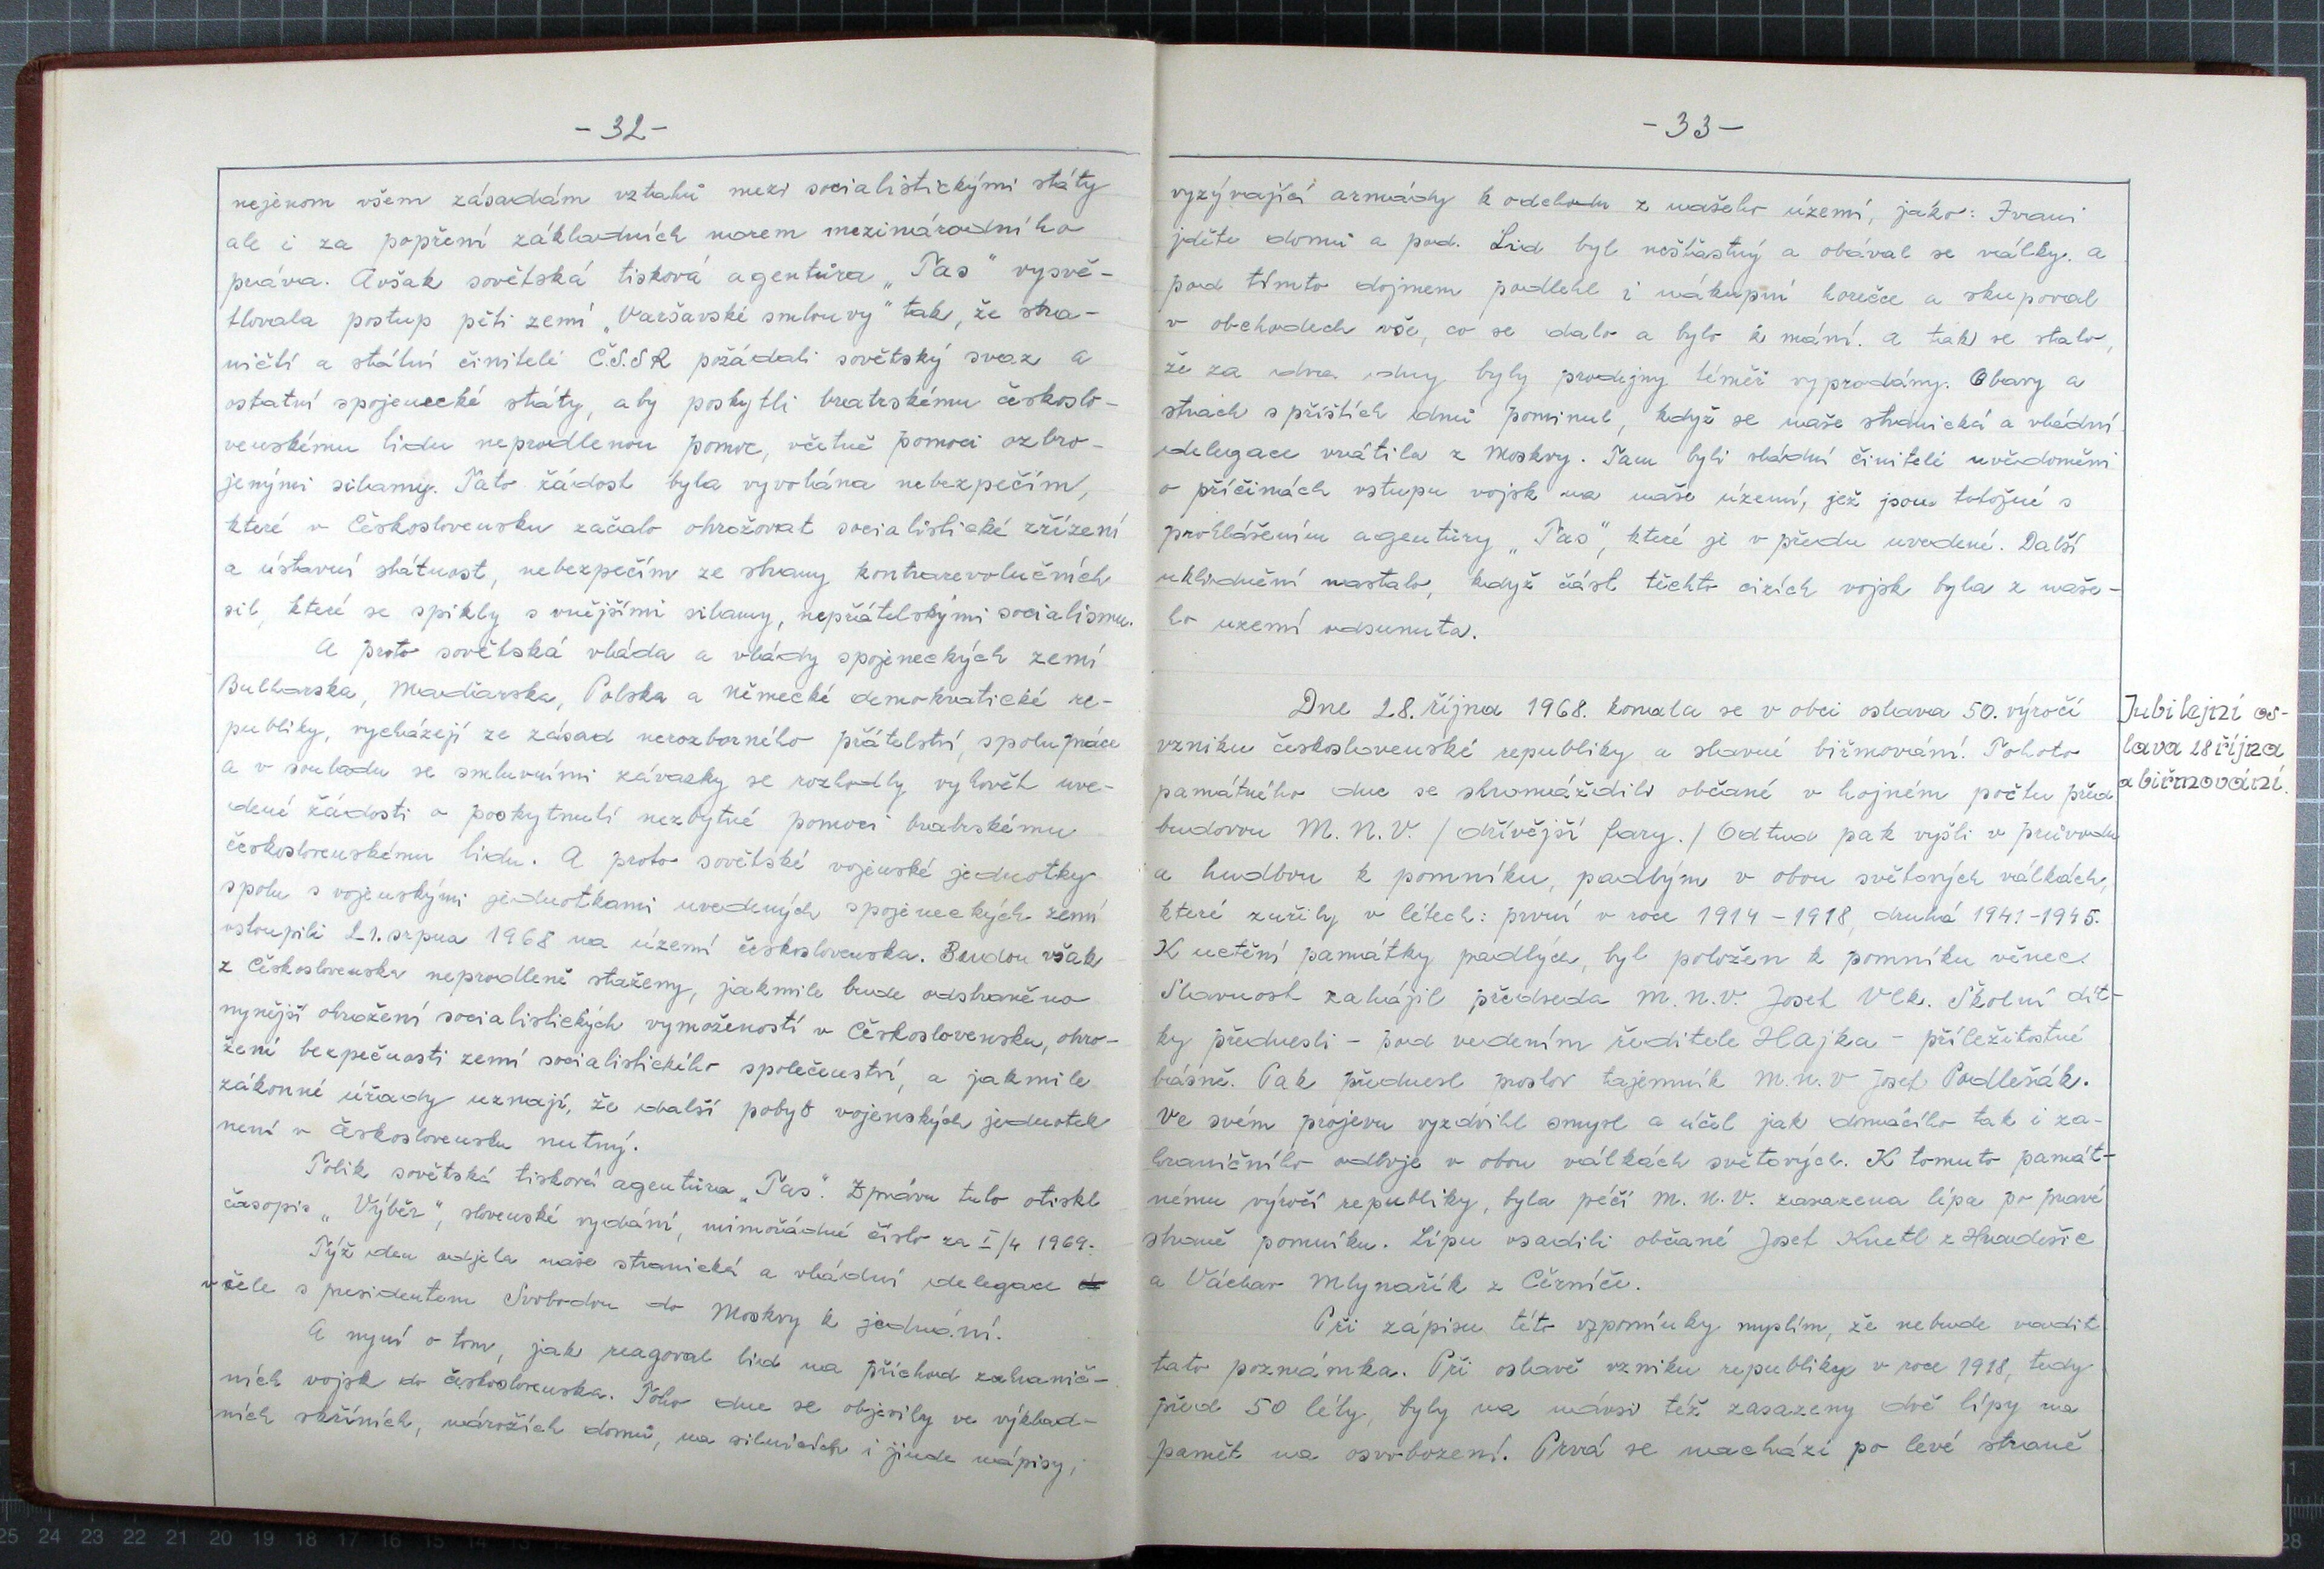 - 32 -
nejenom všem zásadám vztahů mezi socialistickými státy
ale i za popření základních norem mezinárodního
práva. Avšak sovětská tisková agentůra „Tas" vysvě-
tlovala postup pěti zemí „Varšavské smlouvy" tak, že stra-
ničtí a státní činitelé Č.S.S.R požádali sovětský svaz a
ostatní spojenecké státy, aby poskytli bratrskému českoslo-
venskému lidu neprodlenou pomoc, včetně pomoci ozbro-
jenými silamy. Tato žádost byla vyvolána nebezpečím,
které v Československu začalo ohrožovat socialistické zřízení
a ústavní státnost, nebezpečím ze strany kontrarevolučních
sil, které se spikly s vnějšími silamy, nepřátelskými socialismu.
A proto sovětská vláda a vlády spojeneckých zemí
Bulharska, Maďarska, Polska a Německé demokratické re-
publiky, vycházejí ze zásad nerozborného přátelství, spolupráce
a v souladu se smluvními závazky se rozhodly vyhovět uve-
dené žádosti o poskytnutí nezbytné pomoci bratrskému
československému lidu. A proto sovětské vojenské jednotky
spolu s vojenskými jednotkami uvedených spojeneckých zemí
vstoupili 21. srpna 1968 na území československa. Budou však
z Československa neprodleně staženy, jakmile bude odstraněno
nynější ohrožení socialistických vymožeností v Československu, ohro-
žení bezpečnosti zemí socialistického společenství, a jakmile
zákonné úřady uznají, že další pobyt vojenských jednotek
není v československu nutný.
Tolik sovětská tisková agentůra „Tas". Zprávu tuto otiskl
časopis „Výběr", slovenské vydání, mimořádné číslo za I/4 1969.
Týž den odjela naše stranická a vládní delegace
v čele s presidentem Svobodou do Moskvy k jednání.
A nyní o tom, jak reagoval lid na příchod zahranič-
ních vojsk do československa. Toho dne se objevily ve výklad-
ních skříních, nárožích domů, na silnicích i jinde nápisy,
- 33 -
vyzývající armády k odchodu z našeho území, jako: Ivani
jděte domů a pod. Lid byl nešťastný a obával se války. a
pod tímto dojmem podlehl i nákupní horečce a skupoval
v obchodech vše, co se dalo a bylo k mání. a tak se stalo,
že za dva dny byly prodejny téměř vyprodány. Obavy a
strach s příštích dnů pominul, když se naše stranická a vládní
delegace vrátila z Moskvy. Tam byli vládní činitelé uvědoměni
o příčinách vstupu vojsk na naše území, jež jsou totožné s
prohlášením agentůry „Tas", které je v předu uvedené. Další
uklidnění nastalo, když část těchto cizích vojsk byla z naše-
ho uzemí odsunuta.
Jubilejní os-
lava 28 října
a biřmování.
Dne 28. října 1968. konala se v obci oslava 50. výročí
vzniku československé republiky a slavné biřmování. Tohoto
památného dne se shromáždili občané v hojném počtu před
budovou M.N.V. / dřívější fary. / Odtud pak vyšli v průvodu
a hudbou k pomníku, padlým v obou světových válkách,
které zuřily v létech: první v roce 1914 - 1918, druhá 1941-1945.
K uctění památky padlých, byl položen k pomníku věnec.
Slavnost zahájil předseda M.N.V. Josef Vlk. Školní dít-
ky přednesli - pod vedením ředitele Hájka - příležitostné
básně. Pak přednesl proslov tajemník M.N.V Josef Podlešák.
Ve svém projevu vyzdvihl smysl a účel jak domácího tak i za-
hraničního odboje v obou válkách světových. K tomuto památ-
nému výročí republiky, byla péčí M.N.V. zasazena lípa po pravé
straně pomníku. Lípu vsadili občané Josef Knetl z Hradešic
a Václav Mlynařík z Černíče.
Při zápisu této vzpomínky myslím, že nebude vadit
tato poznámka. Při oslavě vzniku republiky v roce 1918, tedy
před 50 léty, byly na návsi též zasazeny dvě lípy na
pamět na osvobození. Prvá se nachází po levé straně